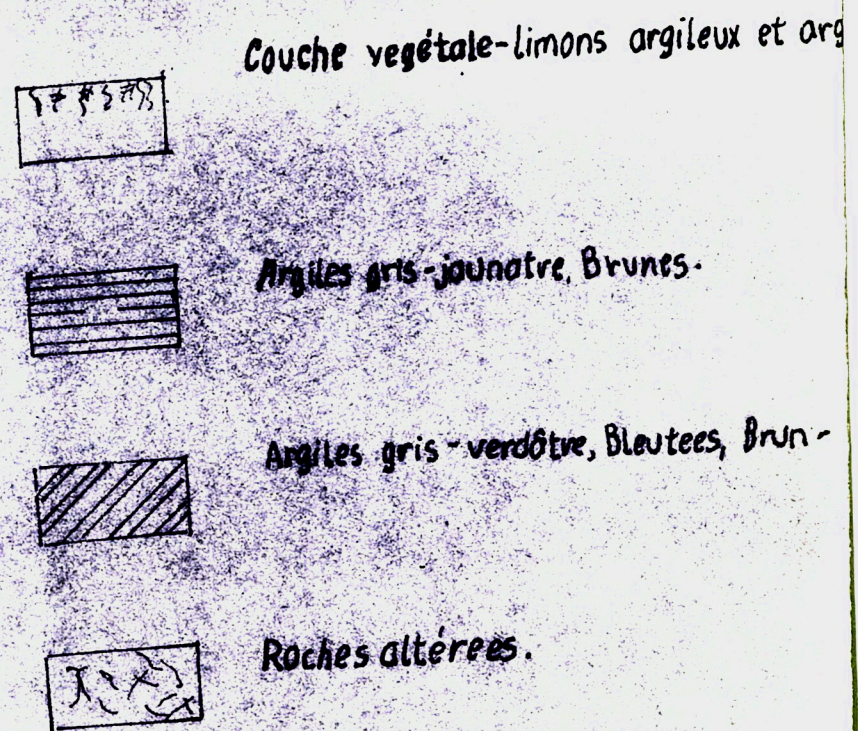 Couche vegétale-limons argileux et arg
Argiles gris-jaunatre, Brunes.
Argiles gris-verdôtre, Bleutees, Brun-
Roches altérees.